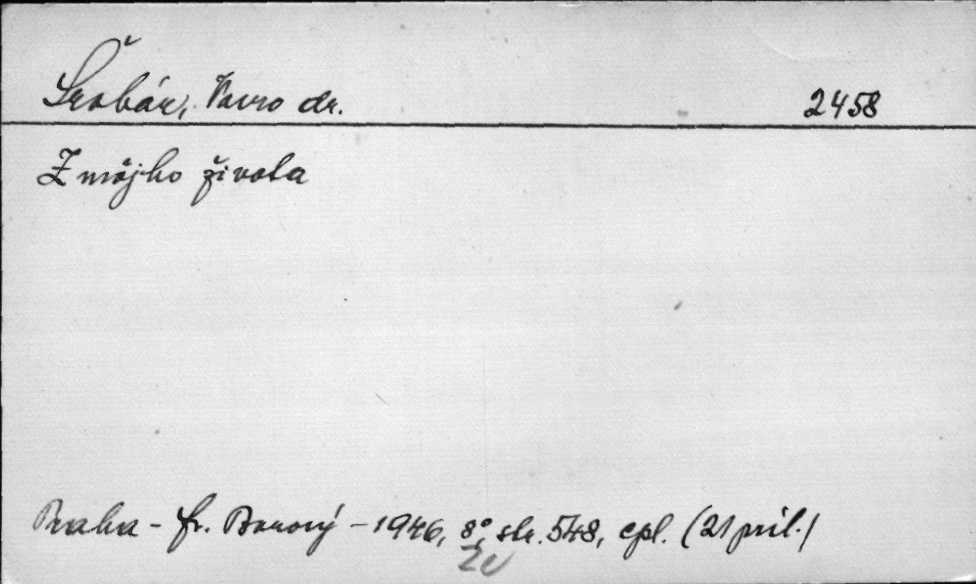 Šrobár, Vavro dr. 2458
Z môjho života
Praha - Fr. Borový - 1946, 8°, str. 548, cpl. (21 príl.)